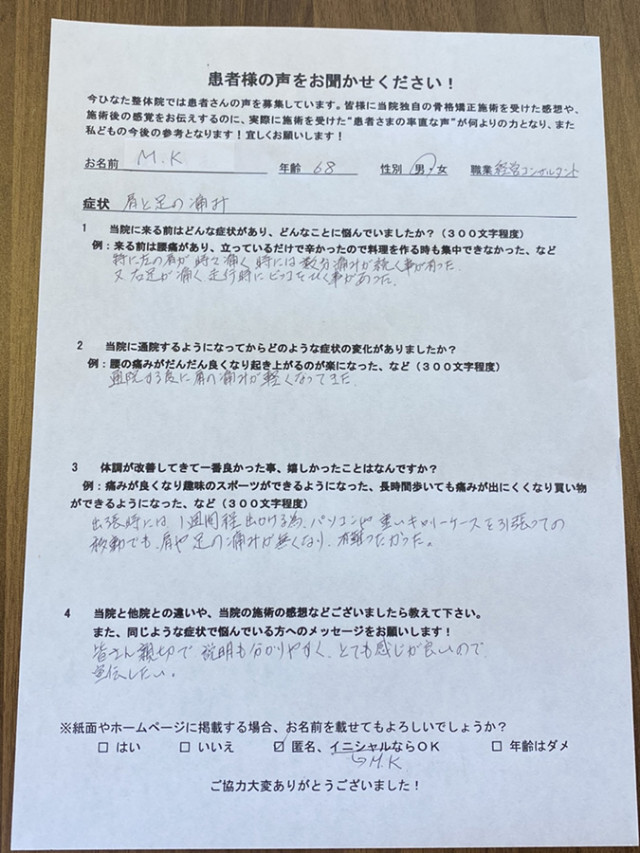 患者様の声をお聞かせください！
今ひなた整体院では患者さんの声を募集しています。皆様に当院独自の骨格矯正施術を受けた感想や、
施術後の感覚をお伝えするのに、実際に施術を受けた“患者さまの率直な声”が何よりの力となり、また
私どもの今後の参考となります！宜しくお願いします！
お名前 M.K 年齢 68 性別 男・女 職業 経営コンサルタント
症状 肩と足の痛み
1 当院に来る前はどんな症状があり、どんなことに悩んでいましたか？（３００文字程度）
例：来る前は腰痛があり、立っているだけで辛かったので料理を作る時も集中できなかった、など
特に左の肩が時々痛く 時には数分痛みが続く事が有った。
又 右足が痛く 走行時にビッコをひく事があった。
2 当院に通院するようになってからどのような症状の変化がありましたか？
例：腰の痛みがだんだん良くなり起き上がるのが楽になった、など（３００文字程度）
通院する度に肩の痛みが軽くなってきた。
3 体調が改善してきて一番良かった事、嬉しかったことはなんですか？
例：痛みが良くなり趣味のスポーツができるようになった、長時間歩いても痛みが出にくくなり買い物
ができるようになった、など（３００文字程度）
出張時には、1週間程出かける為、パソコンや重いキャリーケースを引張っての
移動でも、肩や足の痛みが無くなり、有難かった。
4 当院と他院との違いや、当院の施術の感想などございましたら教えて下さい。
また、同じような症状で悩んでいる方へのメッセージをお願いします！
皆さん親切で 説明も分かりやすく、とても感じが良いので
宣伝したい。
※紙面やホームページに掲載する場合、お名前を載せてもよろしいでしょうか？
□ はい □ いいえ ☑ 匿名、イニシャルならＯＫ □ 年齢はダメ
↳M.K
ご協力大変ありがとうございました！